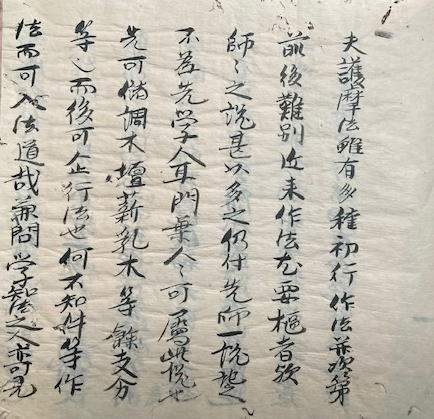 夫護摩法雖有多種初行作法並次第
前後難別近来作法尤要樞者歟
師々之説甚以多之仍付先師一説
不若先学人耳門乗人々可属此説也
先可備調木壇薪乳木等餘支分
等々而後可企行法也何不知件等作
法而可入法道哉兼問学知法之人亦可見